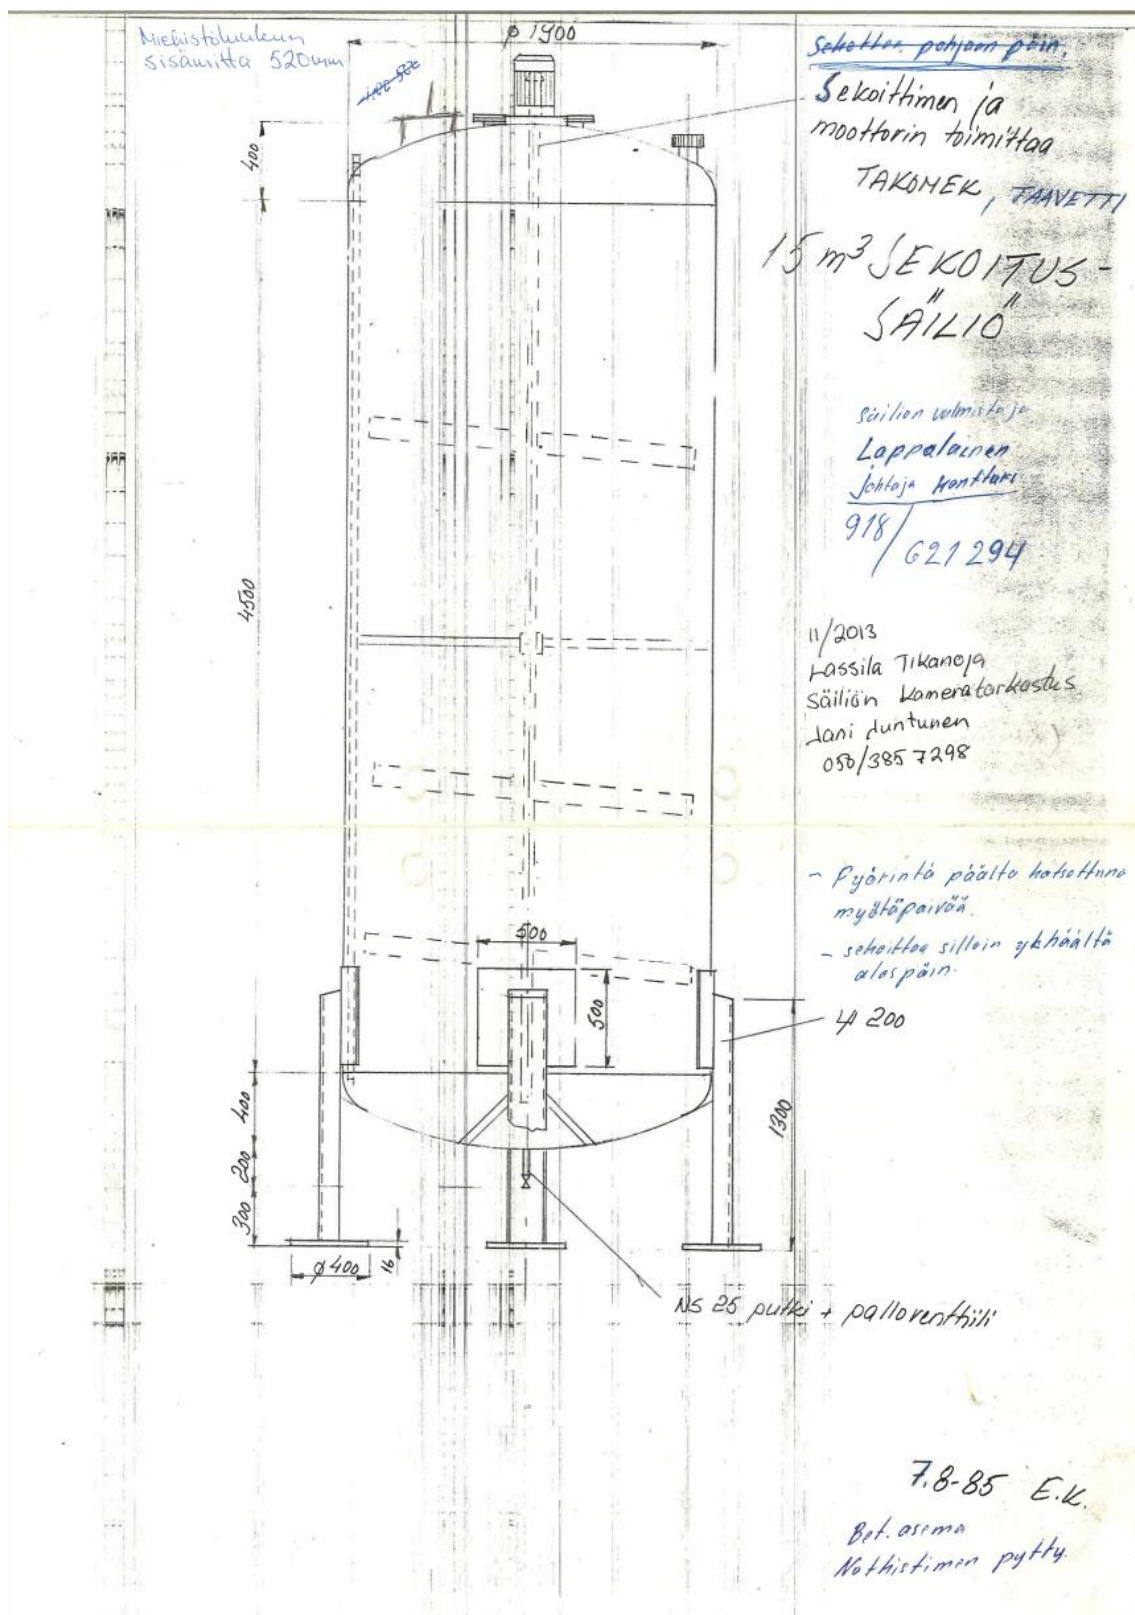 Miehistöluukun
sisämitta 520mm
ø 1900
400
4500
Sekoittaa pohjaan päin.
Sekoittimen ja
moottorin toimittaa
TAKOMEK, TAAVETTI
15 m³ SEKOITUS-
SÄILIÖ
Säiliön valmistaja
Lappalainen
Johtaja Konttari
918/621 294
11/2013
Lassila Tikanoja
Säiliön kameratarkastus
Jani Juntunen
050/385 7298
- Pyörintä päältä katsottuna
myötäpäivää.
- sekoittaa silloin ylhäältä
alaspäin.
500
500
200
1300
400
200
300
ø 400
16
NS 25 putki + palloventtiili
7.8-85 E.K.
Bet. asema
Notkistimen pytty.